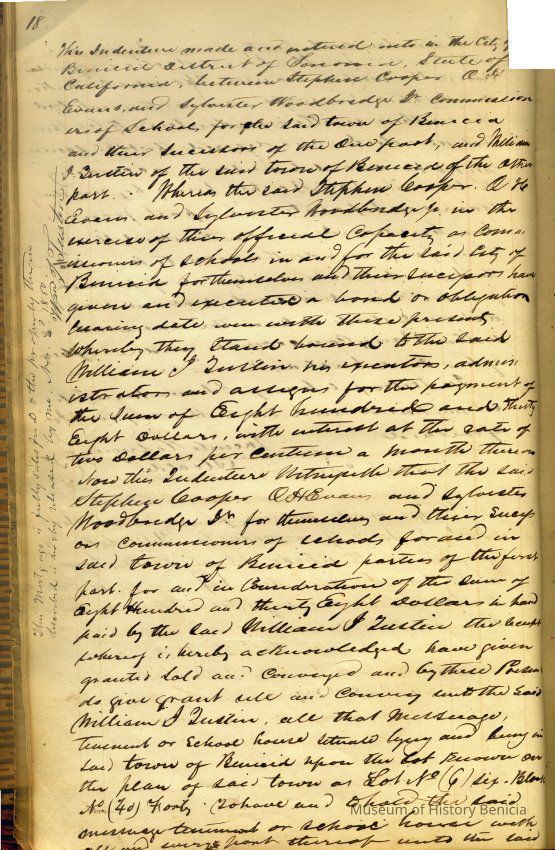 18.
This Indenture made and entered into in the City of
Benicia District of Sonoma, State of
California, between Stephen Cooper. O H
Evans, and Sylvester Woodbridge Jr Commission
ers of School, for the said town of Benicia
and their Successors of the One part, and William
J. Tustin of the said town of Benicia of the other
part. Whereas the said Stephen Cooper. O H
Evans. and Sylvester Woodbridge Jr. in the
exercise of their official Capacity as Comm
issioners of schools in and for the said City of
Benicia for themselves and their Sucessors have
given and executed a bond or obligation
bearing date even with these presents
whereby they Stand bound to the said
William J Tustin his executors, admin
istrators and assigns for the payment of
the Sum of Eight hundred and thirty
Eight Dollars, with interest at the rate of
two Dollars per Centum a month thereon
Now this Indenture Witnesseth that the said
Stephen Cooper O. H Evans and Sylvester
Woodbridge Jr for themselves and their Success
ors Commissioners of schools for and in
said town of Benicia parties of the first
part. for and in Consideration of the sum of
Eight Hundred and thirty Eight Dollars in hand
paid by the said William J Tustin the receipt
whereof is hereby acknowledged have given
granted Sold and Conveyed and by these Presents
do give grant sell and Convey unto the said
William J Tustin, all that Messuage,
tenement or School house situate lying and being in
said town of Benicia upon the Lot known on
the plan of said town as Lot No (6) six. Block
No. (40) Forty. To have and to hold the said
messuage tenement or school house with
all and every part thereof unto the said
This Mortgage is fully satisfied & the property therein
described is hereby released by me
Wm J Tustin
Museum of History Benicia